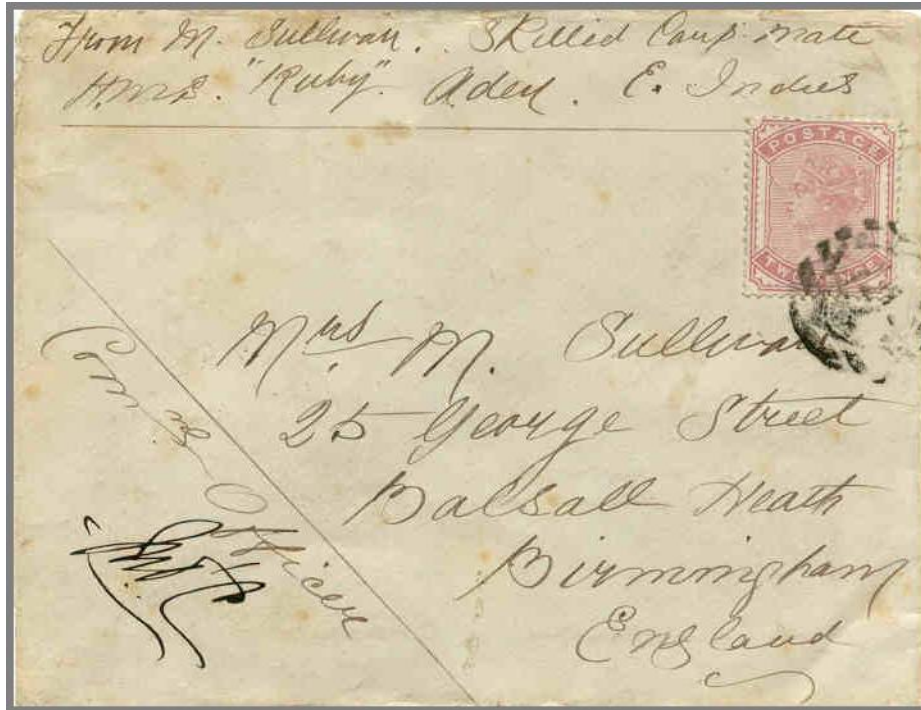 From M. Sullivan. Skilled Carp. mate
H.M.S. "Ruby". Aden. E. Indies
POSTAGE
TWO PENCE
Mrs M. Sullivan
25 George Street
Balsall Heath
Birmingham
England
Comdg Officer